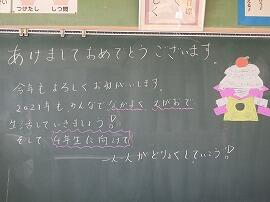 つけたし しつ問
あけましておめでとうございます。
今年もよろしくお願いします。
2021年もみんなでなかよく えがおで
生活していきましょう!
そして 4年生に向けて
一人一人がどりょくしていこう!